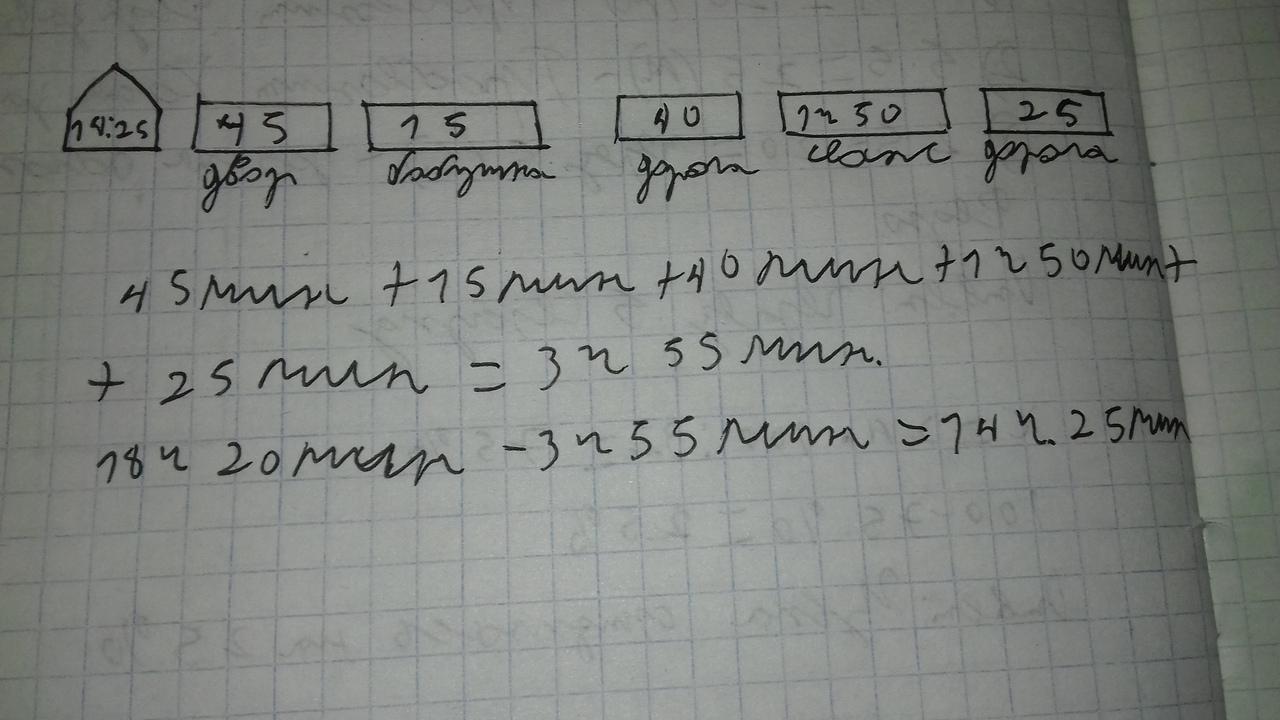 14:25 45 15 40 1ч 50 25
двор бабушка дорога сеанс дорога
45 мин + 15 мин + 40 мин + 1ч 50 мин +
+ 25 мин = 3ч 55 мин.
18ч 20 мин - 3ч 55 мин = 14ч. 25 мин